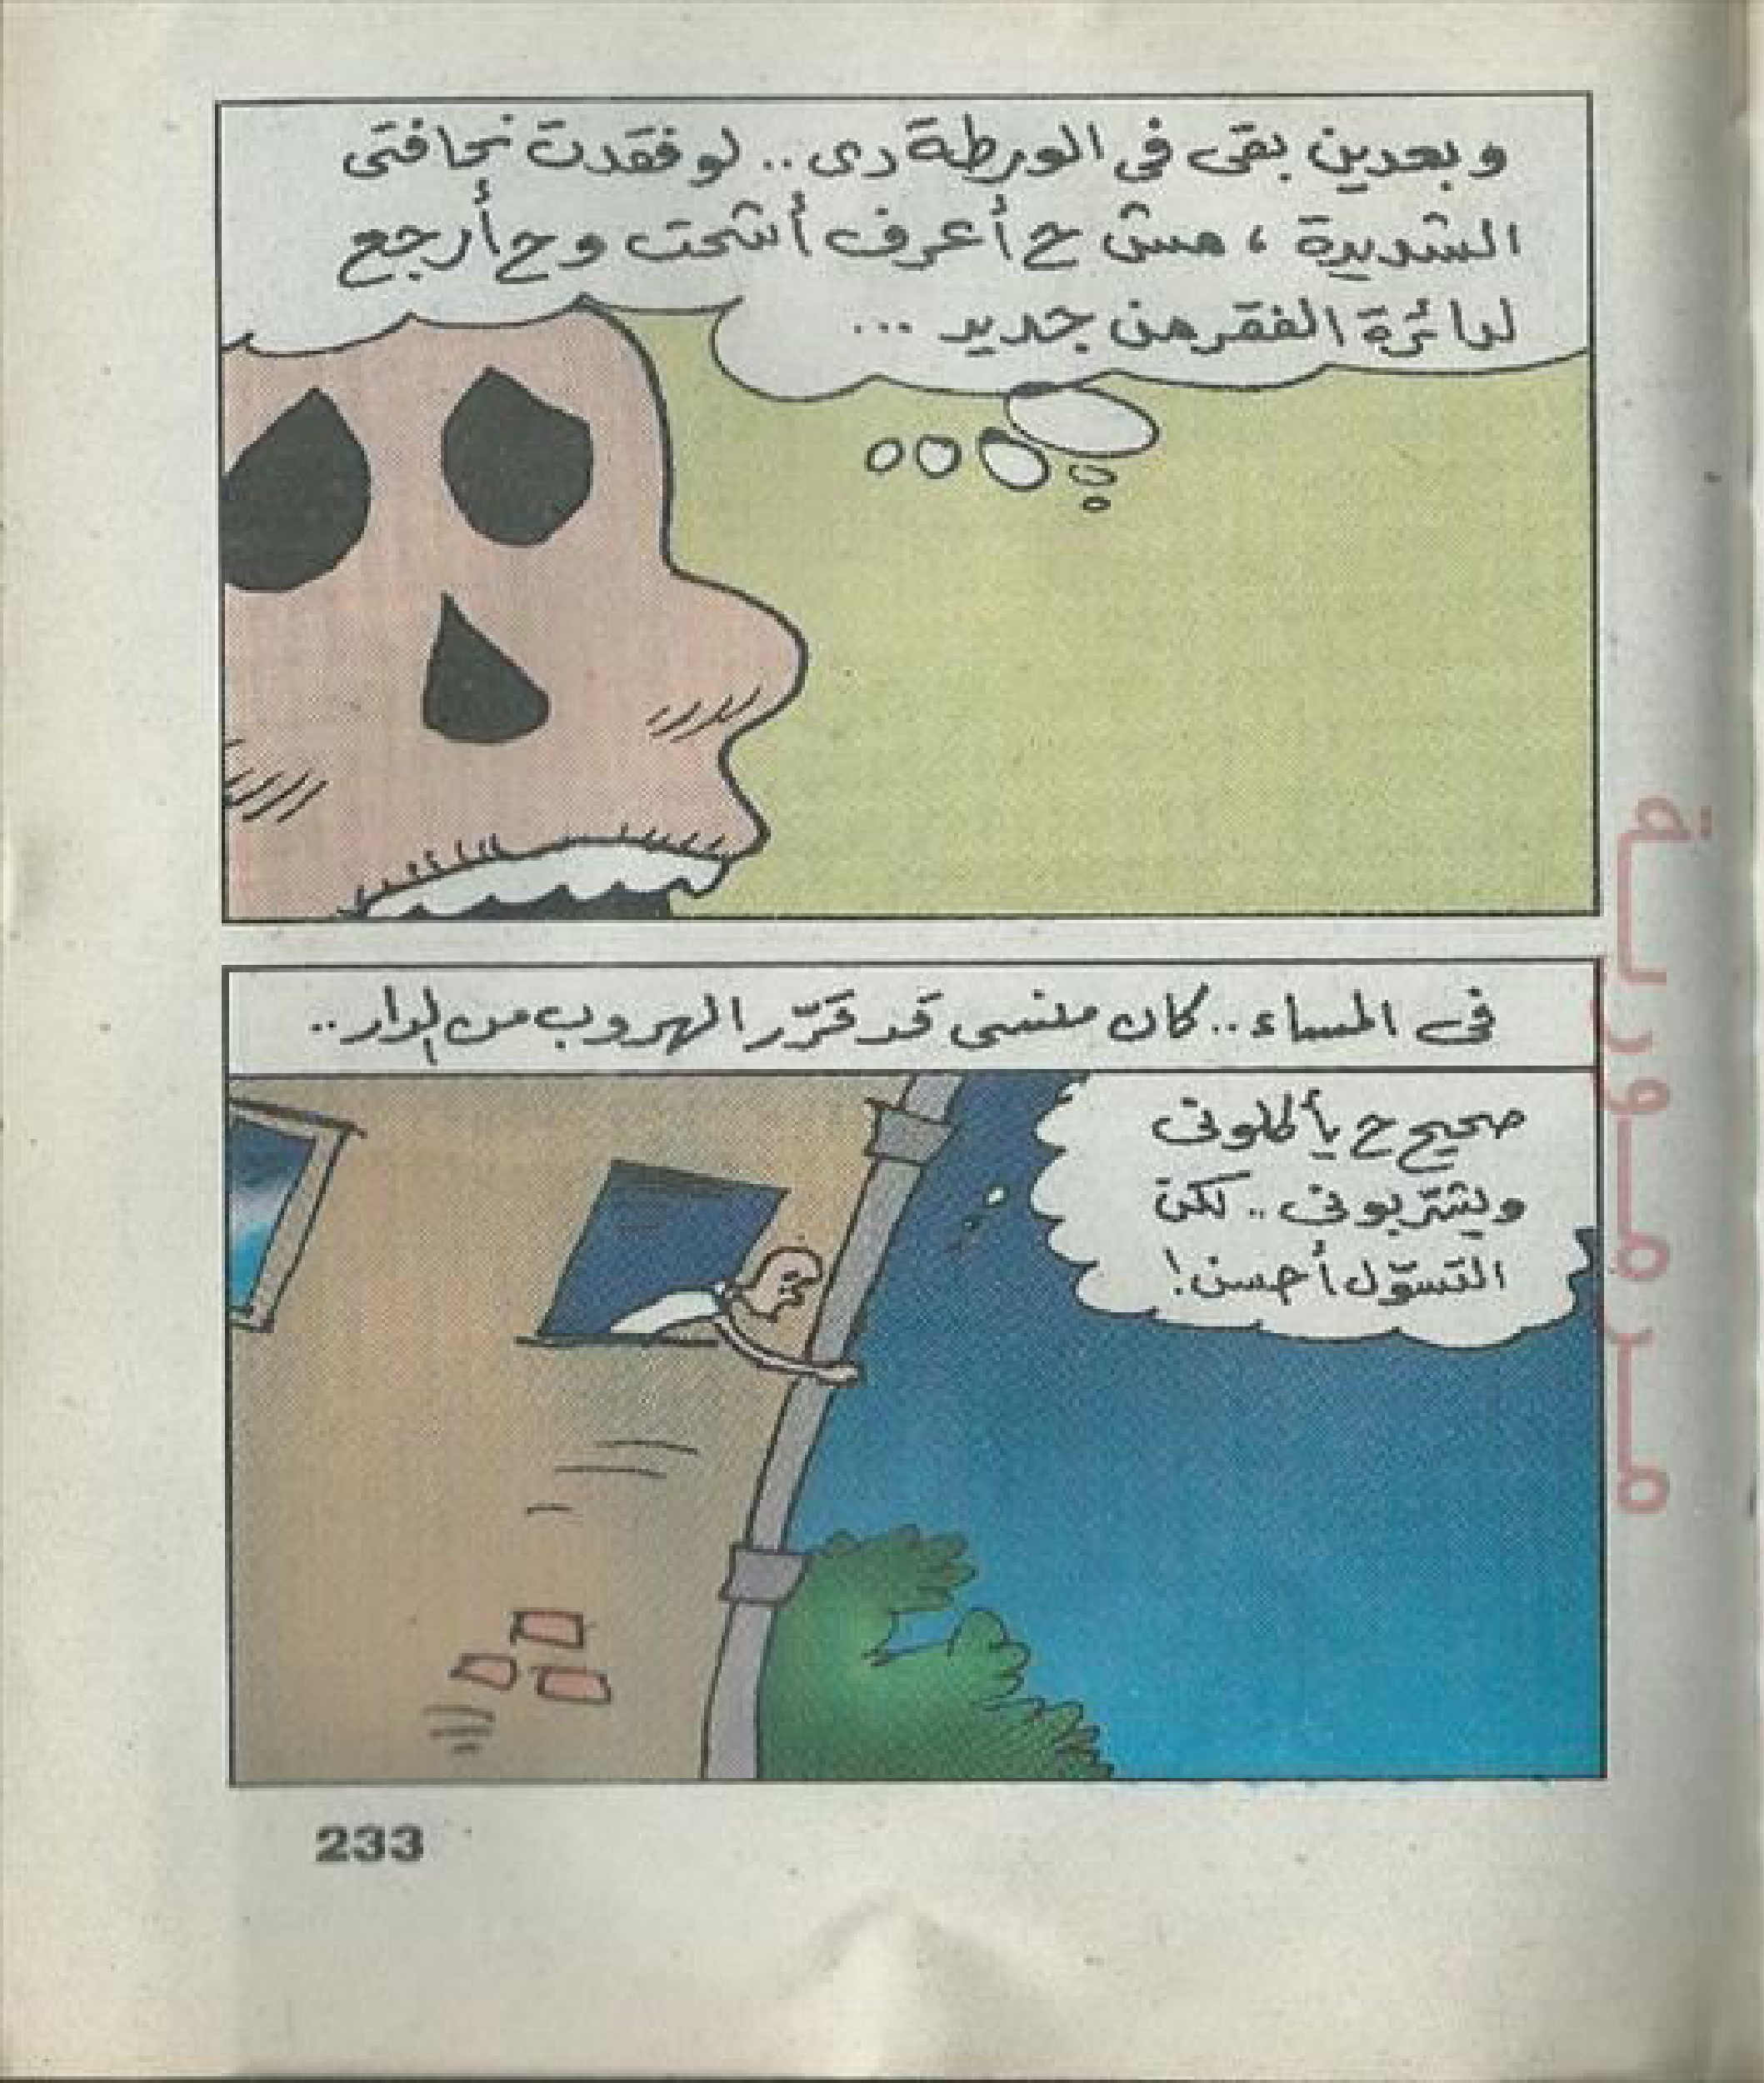 وبعدين بقى فى الورطة دى .. لو فقدت نحافتى
الشديدة ، مش ح أعرف أشحت وح أرجع
لدائرة الفقر من جديد ...
فى المساء .. كان منسى قد قرّر الهروب من الدار ..
صحيح ح يأكلونى
ويشرّبونى .. لكن
التسوّل أحسن !
233
مرمورية